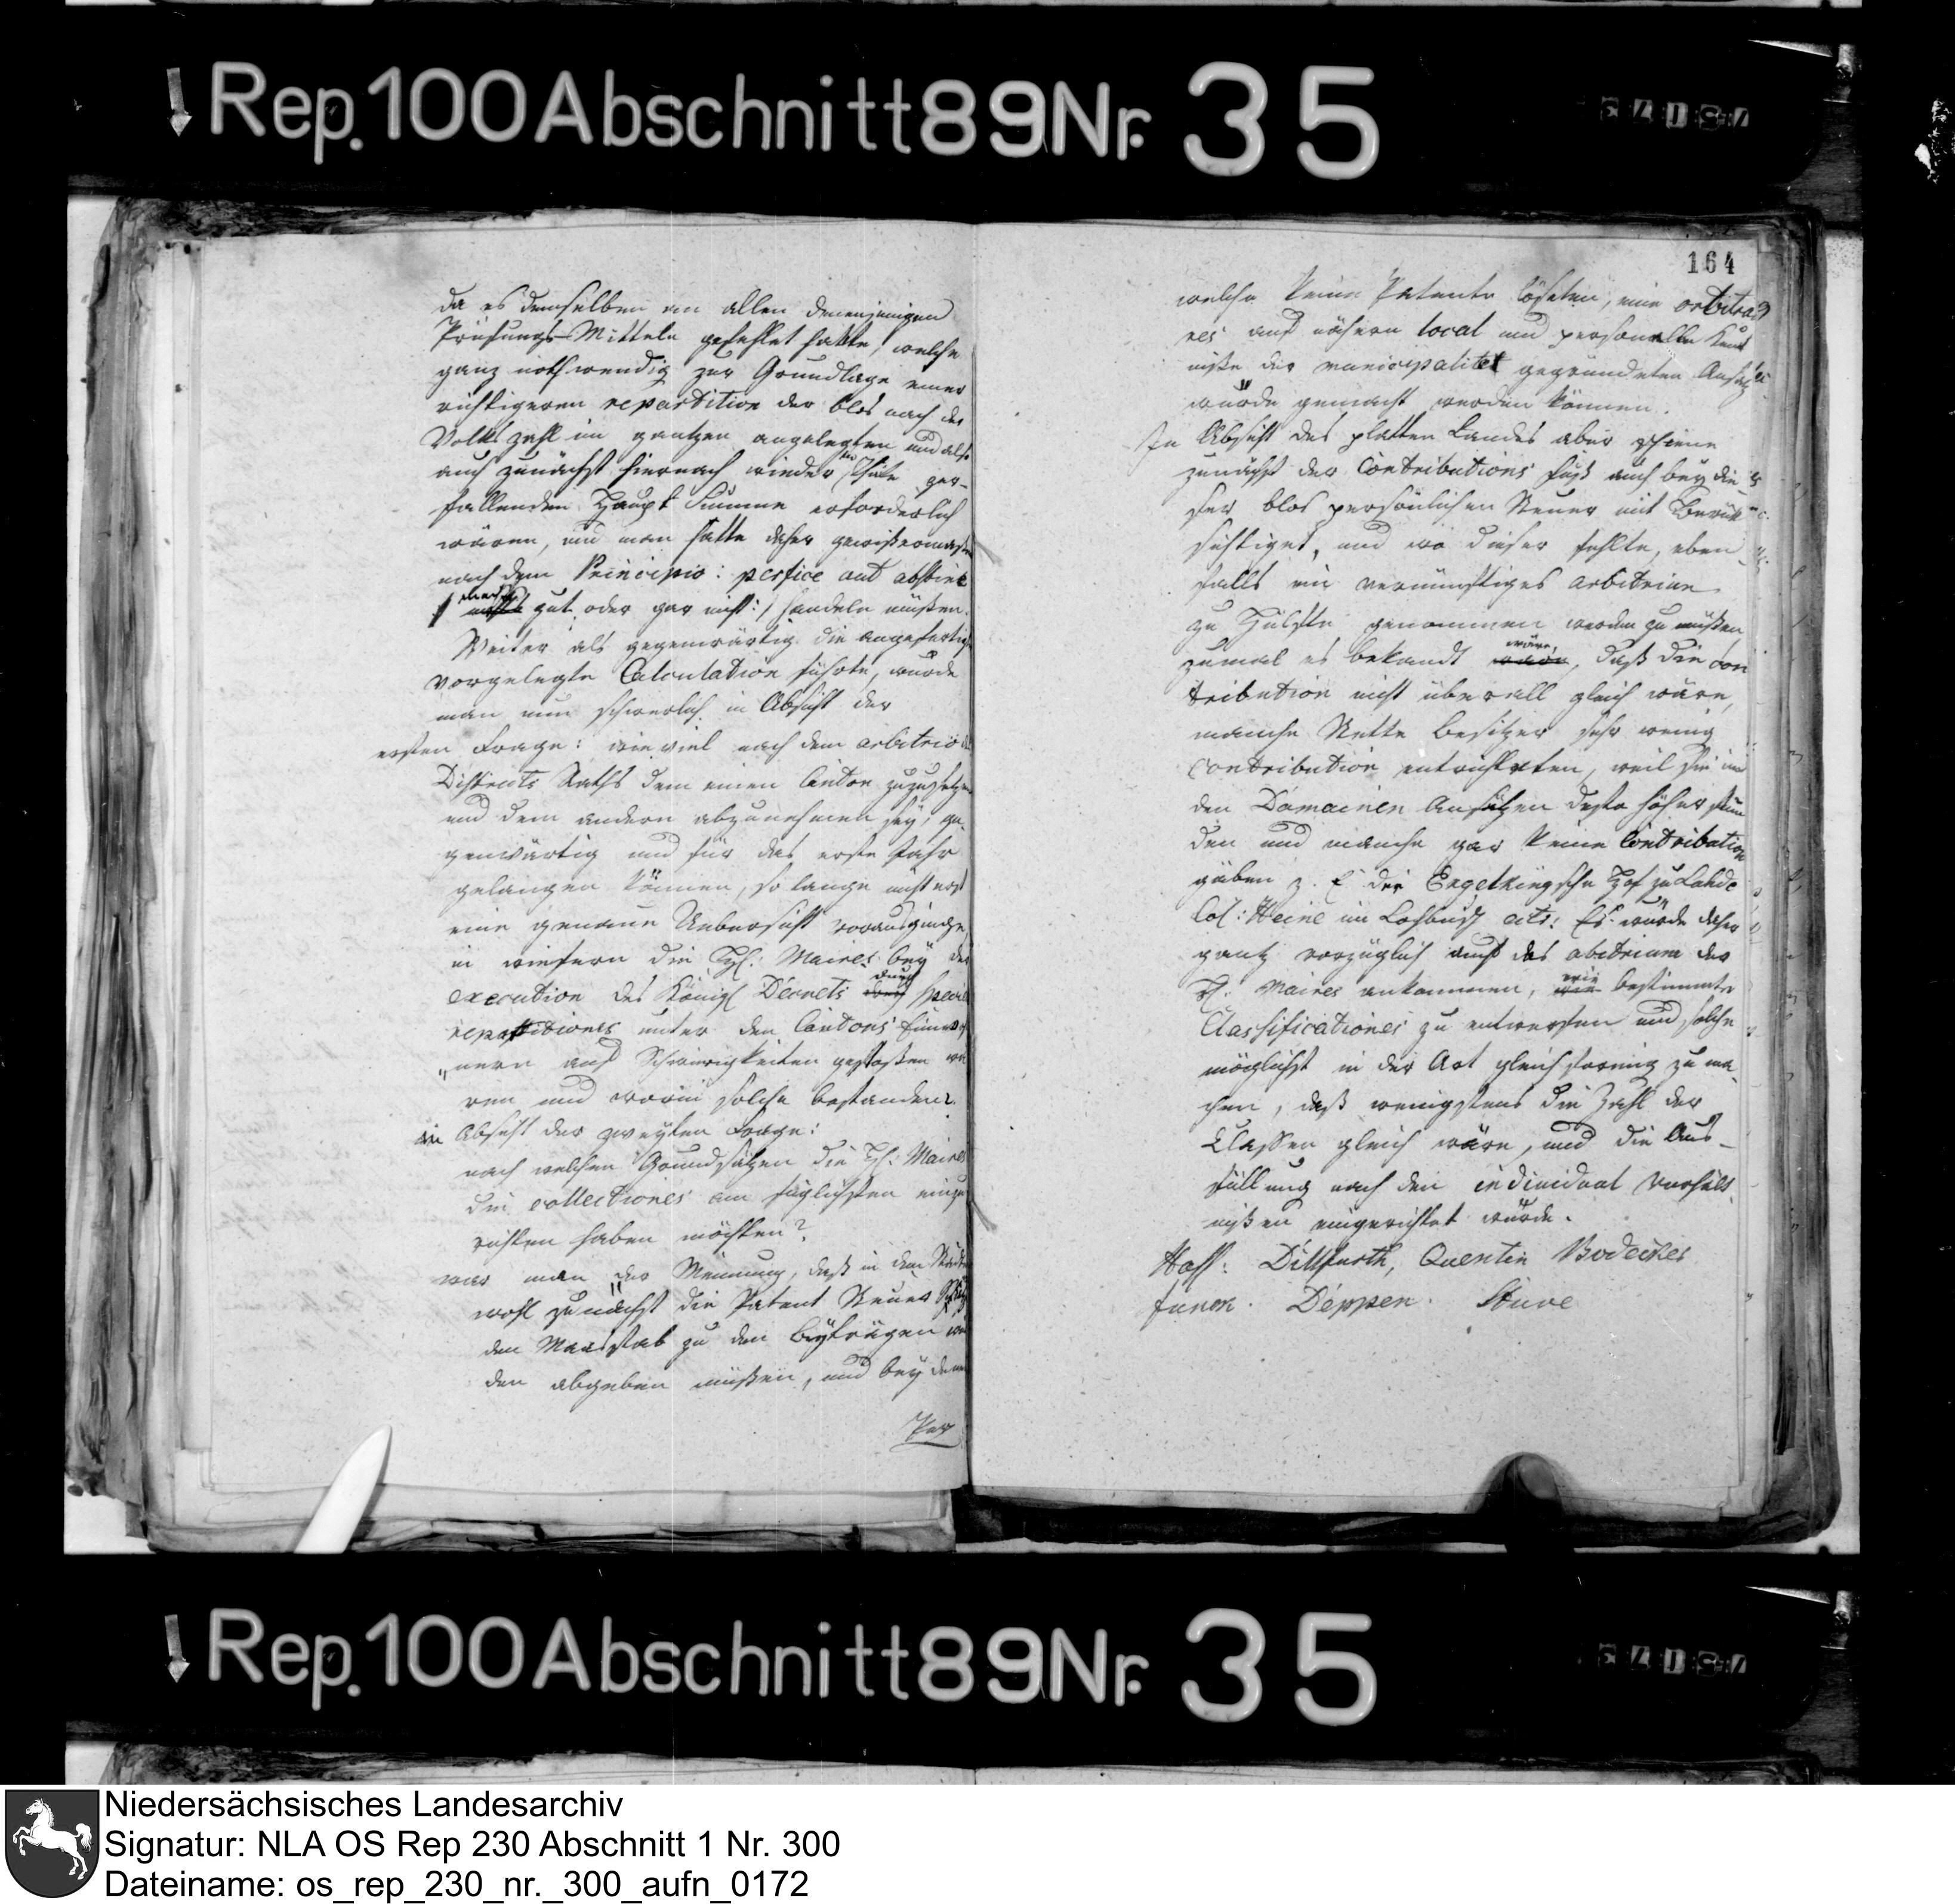 Rep. 100 Abschnitt 89 Nr. 35
164
da es demselben an allen denenjenigen
Prüfungs-Mitteln gefehlet hatte, welche
ganz nothwendig zur Grundlage einer
richtigeren repartition der blos nach der
Volkszahl im gantzen angelegten und also
auch zunächst hiernach wieder zer-
fallenden Haupt Summe erforderlich
wären, und man hatte daher gewißermaßen
nach dem Principio: perfice aut abstine
gut oder gar nicht :/ handeln müßen.
Weiter als gegenwärtig die angefertigt
vorgelegte Calculation führte, wurde
man nun schwerlich in Absicht der
ersten Frage: wie viel nach dem arbitrio des
Districts Raths dem einen Canton zuzusetzen
und dem andern abzunehmen sey, ge-
genwärtig und für das erste Jahr
gelangen können, so lange nicht erst
eine genaue Uebersicht vorausginge,
in wiefern die HH: Maires bey der
execution des Königl Décrets durch special
repartitiones unter den Cantons Einwoh
nern auf Schwierigkeiten gestoßen wä
ren und worin solche bestanden.
in Absicht der zweyten Frage:
nach welchen Grundsätzen die HH: Maires
die collectiones am füglichsten einzu
richten haben möchten?
war man der Meinung, daß in den Städten
wohl zunächst die Patent Steuer
den Maasstab zu den Beyträgen wür
den abgeben müßen, und bey denen
welche keine Patente löseten, ein arbitrai
res auf nähern local und personelle Kent
niße der municipalitet gegründeten Ansatz
würde gemacht werden können.
In Absicht des platten Landes aber schiene
zunächst der Contributions Fuß auch bey die-
ser blos persönlichen Steuer mit Berück
sichtiget, und wo dieser fehlte, eben
falls ein vernünftiges arbitrium
zu Hülfe genommen werden zu müßen
zumal es bekandt wäre, daß die con
tribution nicht überall gleich wäre,
manche Stette Besitzer sehr wenig
contribution entrichteten, weil sie in
den Domainen Ansätzen desto höher stün
den und manche gar keine Contribution
gäben z. E. der Engelkingsche Hof zu Lahde
Col: Heine im Lohbusch etc: Es würde daher
gantz vorzüglich auf das abitrium der
HH: Maires ankommen, wie bestimmte
Classificationes zu entwerfen und solche
möglichst in der Art gleichförmig zu ma
chen, daß wenigstens die Zahl der
Classen gleich wäre, und die Aus-
füllung nach den individual Verhält
nißen eingerichtet würde.
Dittfurth, Quentin Bodecker
Funck. Deppen. Stüve
Rep. 100 Abschnitt 89 Nr. 35
Niedersächsisches Landesarchiv
Signatur: NLA OS Rep 230 Abschnitt 1 Nr. 300
Dateiname: os_rep_230_nr._300_aufn_0172